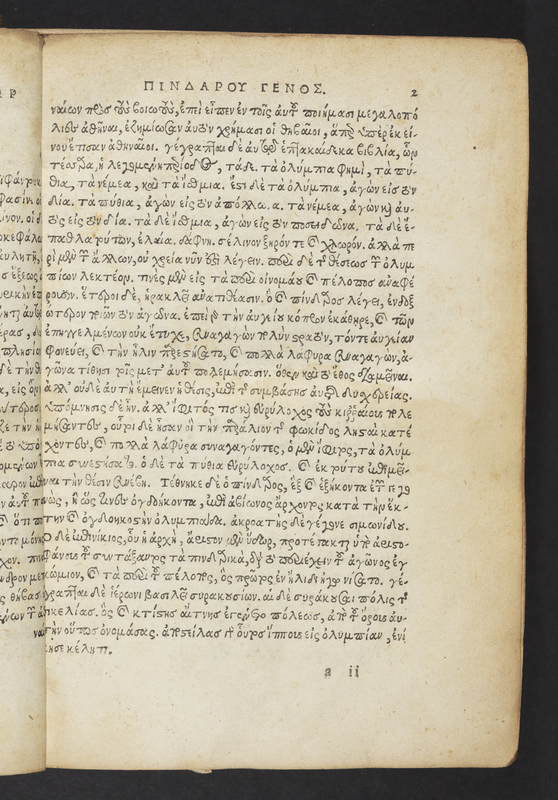 ΠΙΝΔΑΡΟΥ ΓΕΝΟΣ. 2
ναίων πρὸς τοὺς βοιωτοὺς, ἐπεὶ εἶπεν ἐν τοῖς αὐτοῦ ποιήμασι μεγαλοπό
λιες ἀθῆναι, ἐζημίωσαν αὐτὸν χρήμασι οἱ θηβαῖοι, ἅπερ ὑπὲρ ἐκεί-
νου ἔτισαν ἀθηναῖοι. γέγραπται δὲ αὐτῷ ἑπτακαίδεκα βιβλία, ὧν
τέσσαρα, ἡ λεγομένη περίοδος, τάδε. τὰ ὀλύμπια φημὶ, τὰ πύ-
θια, τὰ νέμεα, καὶ τὰ ἴσθμια. ἔστι δὲ τὰ ὀλύμπια, ἀγὼν εἰς τὸν
δία. τὰ πύθια, ἀγὼν εἰς τὸν ἀπόλλωνα. τὰ νέμεα, ἀγὼν καὶ αὐ-
τὸς εἰς τὸν δία. τὰ δὲ ἴσθμια, ἀγὼν εἰς τὸν ποσειδῶνα. τὰ δὲ ἔ-
παθλα τούτων, ἐλαία. δάφνη. σέλινον ξηρόν τε καὶ χλωρόν. ἀλλὰ πε
ρὶ μὲν τῶν ἄλλων, οὐ χρεία νῦν λέγειν. περὶ δὲ τῆς θέσεως τῶν ὀλυμ
πίων λεκτέον. τινὲς μὲν εἰς τὰ περὶ οἰνομάου καὶ πέλοπος ἀναφέ
ρουσιν. ἕτεροι δὲ, ἡρακλεῖ ἀνατιθέασιν. ὁ καὶ πίνδαρος λέγει, ἐνδοξ
ώτερον ποιῶν τὸν ἀγῶνα. ἐπειδὴ τὴν αὐγείου κόπρον ἐκάθηρε, καὶ τῶν
ἐπηγγελμένων οὐκ ἔτυχε, συναγαγὼν πολὺν στρατὸν, τόν τε αὐγείαν
φονεύει, καὶ τὴν ἦλιν παρεστήσατο, καὶ πολλὰ λάφυρα συναγαγὼν, ἀ-
γῶνα τίθησι τοῖς μετ' αὐτοῦ πολεμήσασιν.
ἀλλ' οὐδὲ αὐτὴ ἔμεινεν ἡ θέσις, ἐπὶ τῆς συμβάσης αὐτῷ δυσχερείας.
ὑπόμνησις δὲ ἦν. ἀλλ' ἴφιτός τις καὶ εὐρύλοχος τοὺς κιρραίους πολε
μήσαντες, οὗτοι δὲ ἦσαν οἱ τὴν παράλιον τῆς φωκίδος λῃσταὶ κατέ
χοντες, καὶ πολλὰ λάφυρα συναγαγόντες, ὁ μὲν ἴφιτος, τὰ ὀλύμ
πια συνεστήσατο. ὁ δὲ τὰ πύθια εὐρύλοχος. καὶ ἐκ τούτου
ναι τὴν θέσιν συνέβη. Τέθνηκε δὲ ὁ πίνδαρος, ἓξ καὶ ἑξήκοντα ἐτῶν γεγο
νὼς, ἢ ὥς τινες ὀγδοήκοντα, ἐπὶ ἀβίωνος ἄρχοντος κατὰ τὴν ἕκ-
την καὶ ὀγδοηκοστὴν ὀλυμπιάδα. ἀκροατὴς δὲ γέγονε σιμωνίδου.
Ὁ δὲ ἐπινίκιος, οὗ ἡ ἀρχὴ, ἄριστον μὲν ὕδωρ, προτέτακται ὑπὸ ἀριστο-
φάνους τοῦ συντάξαντος τὰ πινδαρικὰ, διὰ τὸ περιέχειν τοῦ ἀγῶνος ἐγ
κώμιον, καὶ τὰ περὶ τοῦ πέλοπος, ὃς πρῶτος ἐν ἤλιδι ἠγωνίσατο. γέ-
γραπται δὲ ἱέρωνι βασιλεῖ συρακουσίων. αἱ δὲ συράκουσαι πόλις τῆς
σικελίας. ὃς καὶ κτίστης αἴτνης ἐγένετο πόλεως, ἀπὸ τοῦ ὄρους αὐ-
τὴν οὕτως ὀνομάσας. ἀποστείλας δὲ οὗτος ἵππους εἰς ὀλυμπίαν, ἐνί
κησε κέλητι.
a ii